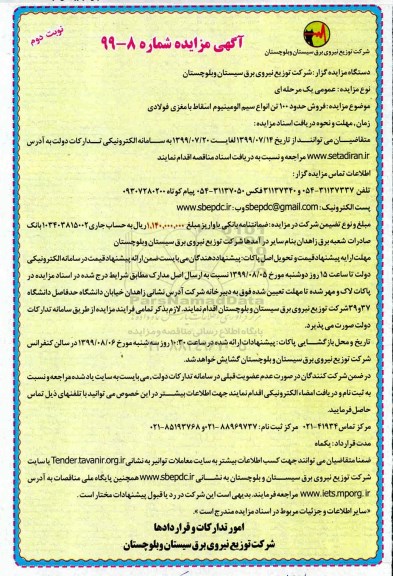 نوبت دوم
آگهی مزایده شماره ۸-۹۹
شرکت توزیع نیروی برق سیستان وبلوچستان
دستگاه مزایده گزار: شرکت توزیع نیروی برق سیستان وبلوچستان
نوع مزایده: عمومی یک مرحله ای
موضوع مزایده: فروش حدود ۱۰۰ تن انواع سیم آلومینیوم اسقاط با مغزی فولادی
زمان، مهلت و نحوه دریافت اسناد مزایده:
متقاضیـان می تواننـد از تاریخ ۱۳۹۹/۰۷/۱۴ لغایـت ۱۳۹۹/۰۷/۲۰ به سـامانه الکترونیکی تـدارکات دولت به آدرس
www.setadiran.ir مراجعه و نسبت به دریافت اسناد مناقصه اقدام نمایند
اطلاعات تماس مزایده گزار:
تلفن ۳۱۱۳۷۳۳۷-۰۵۴ و ۳۱۱۳۷۳۴۰ فکس ۳۱۱۳۷۰۵۰-۰۵۴ پیام کوتاه ۰۹۳۰۷۲۸۰۲۰۰
پست الکترونیک: sbepdc@gmail.com وب: www.sbepdc.ir
مبلغ و نوع تضمین شرکت در مزایده: ضمانتنامه بانکی یا واریز مبلغ ۱,۱۴۰,۰۰۰,۰۰۰ ریال به حساب جاری ۰۱۰۳۴۰۳۸۱۵۰۰۲ بانک
صادرات شعبه برق زاهدان بنام سایر در آمدها شرکت توزیع نیروی برق سیستان وبلوچستان
مهلت ارایه پیشنهاد قیمت و تحویل اصل پاکات: پیشنهاد دهندگان می بایست ضمن ارائه پیشنهاد قیمت در سامانه تدارکات
دولت تا ساعت ۱۵ روز دوشنبه مورخ ۱۳۹۹/۰۸/۰۵ نسبت به ارسال اصل مدارک مطابق شرایط درج شده در اسناد مزایده در
پاکات لاک و مهر شده تا مهلت تعیین شده فوق به دبیرخانه شرکت آدرس نشانی زاهدان خیابان دانشگاه حدفاصل دانشگاه
۳۷ و ۳۹ شرکت توزیع نیروی برق سیستان وبلوچستان اقدام نمایند. لازم بذکر تمامی فرایند مزایده از طریق سامانه تدارکات
دولت صورت می پذیرد.
تاریخ و محل بازگشـایی پاکات: پیشنهادات ارائه شده در ساعت ۱۰:۳۰ روز سه شنبه مورخ ۱۳۹۹/۰۸/۰۶ در سالن کنفرانس
شرکت توزیع نیروی برق سیستان و بلوچستان گشایش خواهد شد.
در ضمن شرکت کنندگان در صورت عدم عضویت قبلی در سامانه تدارکات دولت، می بایست به سایت یاد شده مراجعه و نسبت
به ثبت نام و دریافت امضاء الکترونیکی اقدام نمایند جهت اطلاعات بیشتـر در این خصوص می توانید با تلفنهای ذیل تماس
حاصل فرمایید.
مرکز تماس ۴۱۹۳۴-۰۲۱ مرکز ثبت نام: ۸۸۹۶۹۷۳۷-۰۲۱ و ۸۵۱۹۳۷۶۸-۰۲۱
مدت قرارداد: یکماه
ضمنا متقاضیان می توانند جهت کسب اطلاعات بیشتر به سایت معاملات توانیر به نشانی Tender.tavanir.org.ir یا سایت
شرکت توزیع نیروی برق سیسـتان و بلوچستان به نشانـی www.sbepdc.ir همچنین پایگاه ملی مناقصات به آدرس
www.iets.mporg.ir مراجعه فرمایند. بدیهی است این شرکت در رد یا قبول پیشنهادات مختار است.
«سایر اطلاعات و جزئیات مربوط در اسناد مزایده مندرج است.»
امور تدارکات و قراردادها
شرکت توزیع نیروی برق سیستان وبلوچستان